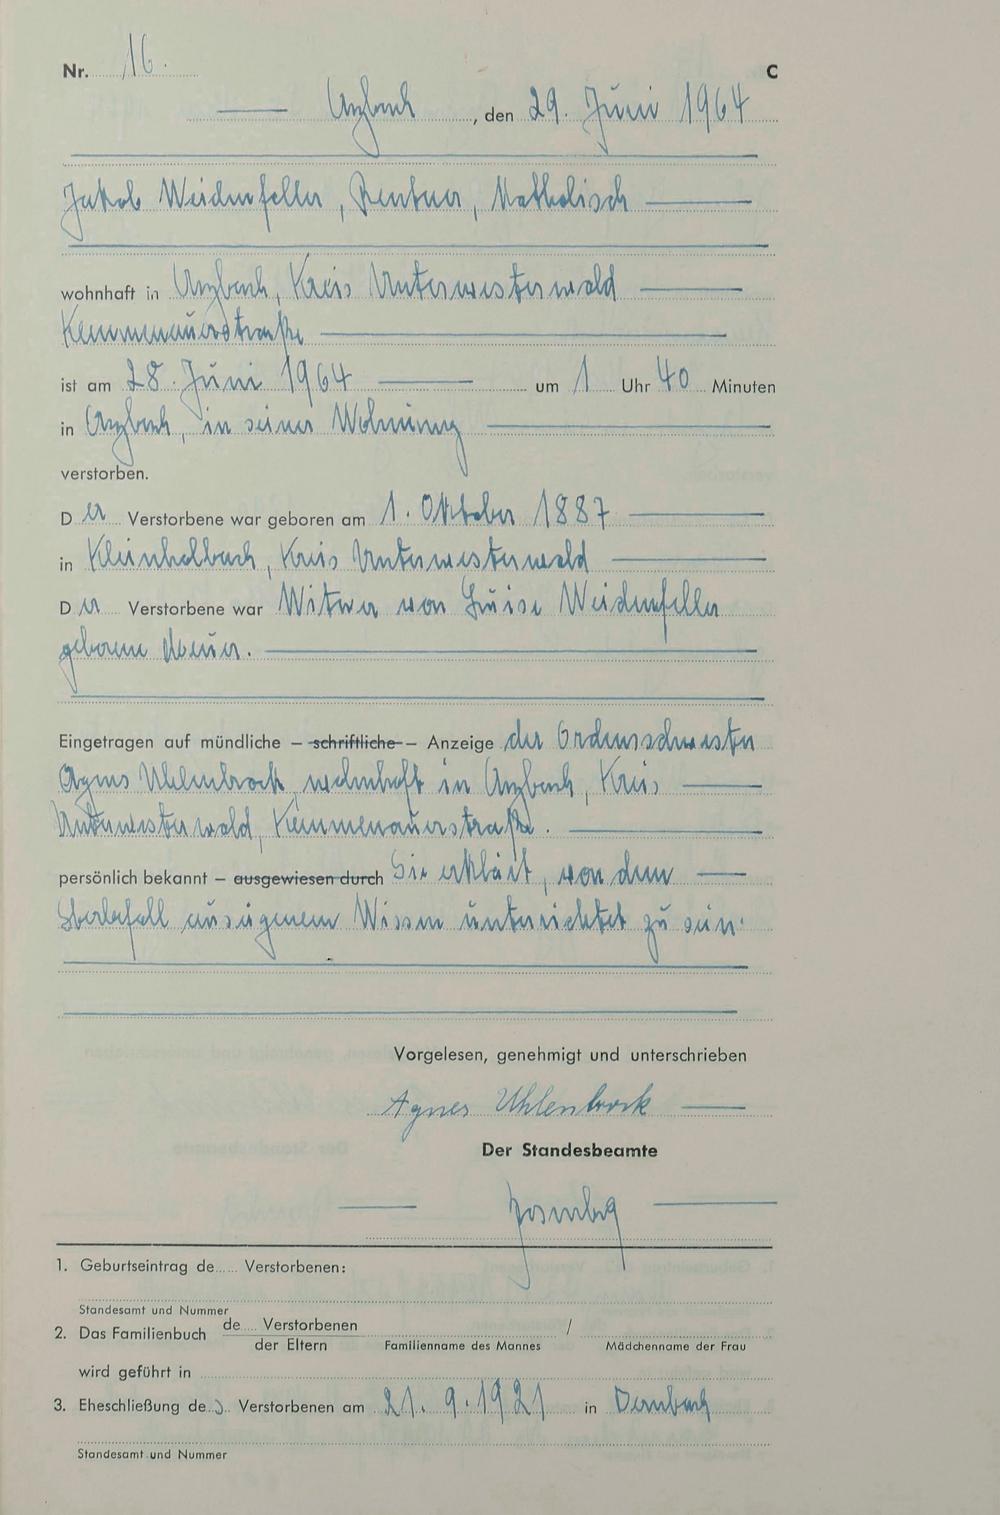 Nr. 16. C
Arzbach, den 29. Juni 1964
Jakob Weidenfeller, Rentner, Katholisch
wohnhaft in Arzbach, Kreis Unterwesterwald
Kemmenauerstraße
ist am 28. Juni 1964 um 1 Uhr 40 Minuten
in Arzbach, in seiner Wohnung
verstorben.
D er Verstorbene war geboren am 1. Oktober 1887
in Kleinholbach, Kreis Unterwesterwald
D er Verstorbene war Witwer von Luise Weidenfeller
geborene
Eingetragen auf mündliche – schriftliche – Anzeige der Ordensschwester
Agnes Uhlenbrock, wohnhaft in Arzbach, Kreis
Unterwesterwald, Kemmenauerstraße.
persönlich bekannt – ausgewiesen durch Sie erklärt, von dem
Sterbefall aus eigenem Wissen unterrichtet zu sein.
Vorgelesen, genehmigt und unterschrieben
Agnes Uhlenbrock
Der Standesbeamte
1. Geburtseintrag de...... Verstorbenen:
Standesamt und Nummer
2. Das Familienbuch de.... Verstorbenen /
der Eltern Familienname des Mannes Mädchenname der Frau
wird geführt in
3. Eheschließung des Verstorbenen am 21. 9. 1921 in Dernbach
Standesamt und Nummer